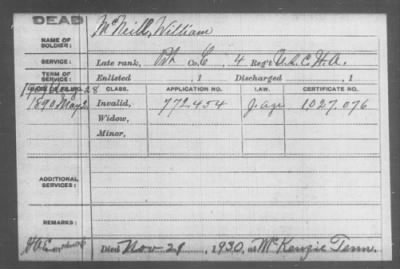 DEAD
NAME OF SOLDIER: McNeill, William
SERVICE: Late rank, Pvt Co. C, 4 Reg't U.S.C.H.A.
TERM OF SERVICE: Enlisted , 1 Discharged , 1
DATE OF FILING. CLASS. APPLICATION NO. LAW. CERTIFICATE NO.
1890 May 2 Invalid, 772.454 J. age 1027.076
Widow,
Minor,
ADDITIONAL SERVICES:
REMARKS:
Died Nov 21, 1930, at McKenzie Tenn.